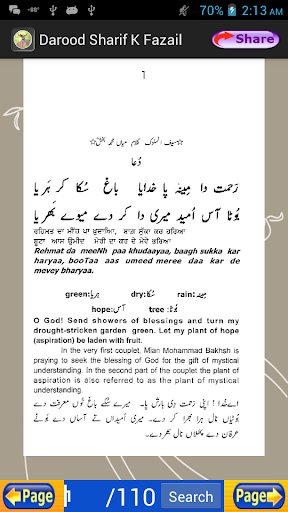 70% 2:13 AM
Darood Sharif K Fazail
Share
1
☆سیف الملوک کلام میاں محمد بخشؒ☆
دُعا
رَحمت دا مِینہ پا خدایا باغ سُکا کر ہریا
بُوٹا آس اُمید میری دا کر دے میوے بَھریا
ਰਹਿਮਤ ਦਾ ਮੀਂਹ ਪਾ ਖੁਦਾਇਆ, ਬਾਗ਼ ਸੁੱਕਾ ਕਰ ਹਰਿਆ
ਬੂਟਾ ਆਸ ਉਮੀਦ ਮੇਰੀ ਦਾ ਕਰ ਦੇ ਮੇਵੇ ਭਰਿਆ
Rehmat da meeNh paa khudaayaa, baagh sukka kar
haryaa, booTaa aas umeed meree daa kar de
mevey bharyaa.
green:ہریا dry:سُکا rain:مِینہ
hope:آس tree :بُوٹا
O God! Send showers of blessings and turn my
drought-stricken garden green. Let my plant of hope
(aspiration) be laden with fruit.
In the very first couplet, Mian Mohammad Bakhsh is
praying to seek the blessing of God for the gift of mystical
understanding. In the second part of the couplet the plant of
aspiration is also referred to as the plant of mystical
understanding.
اےخدا! اپنی رحمت دی بارش پا۔ میرے سُکے باغ نوں معرفت دے
بُوٹیاں نال ہرا بھرا کر دے۔ میری اُمیداں تے آساں دے بُوٹے
عرفان دے پھلاں نال بھردے۔
Page
1
/110
Search
Page